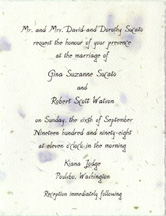 Mr. and Mrs. David and Dorothy Swato
request the honour of your presence
at the marriage of
Gina Suzanne Swato
and
Robert Scott Watson
on Sunday, the sixth of September
Nineteen hundred and ninety-eight
at eleven o'clock in the morning
Kiana Lodge
Poulsbo, Washington
Reception immediately following